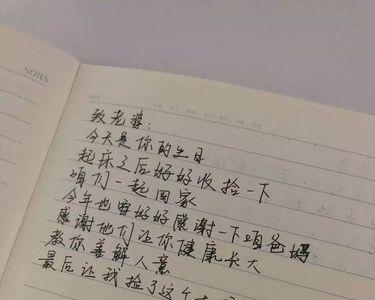 NOTES
致老婆：
今天是你的生日
起床之后好好收拾一下
咱们一起回家
今年也要好好感谢一下咱爸妈
感谢他们让你健康长大
教你善解人意
最后让我捡了这个